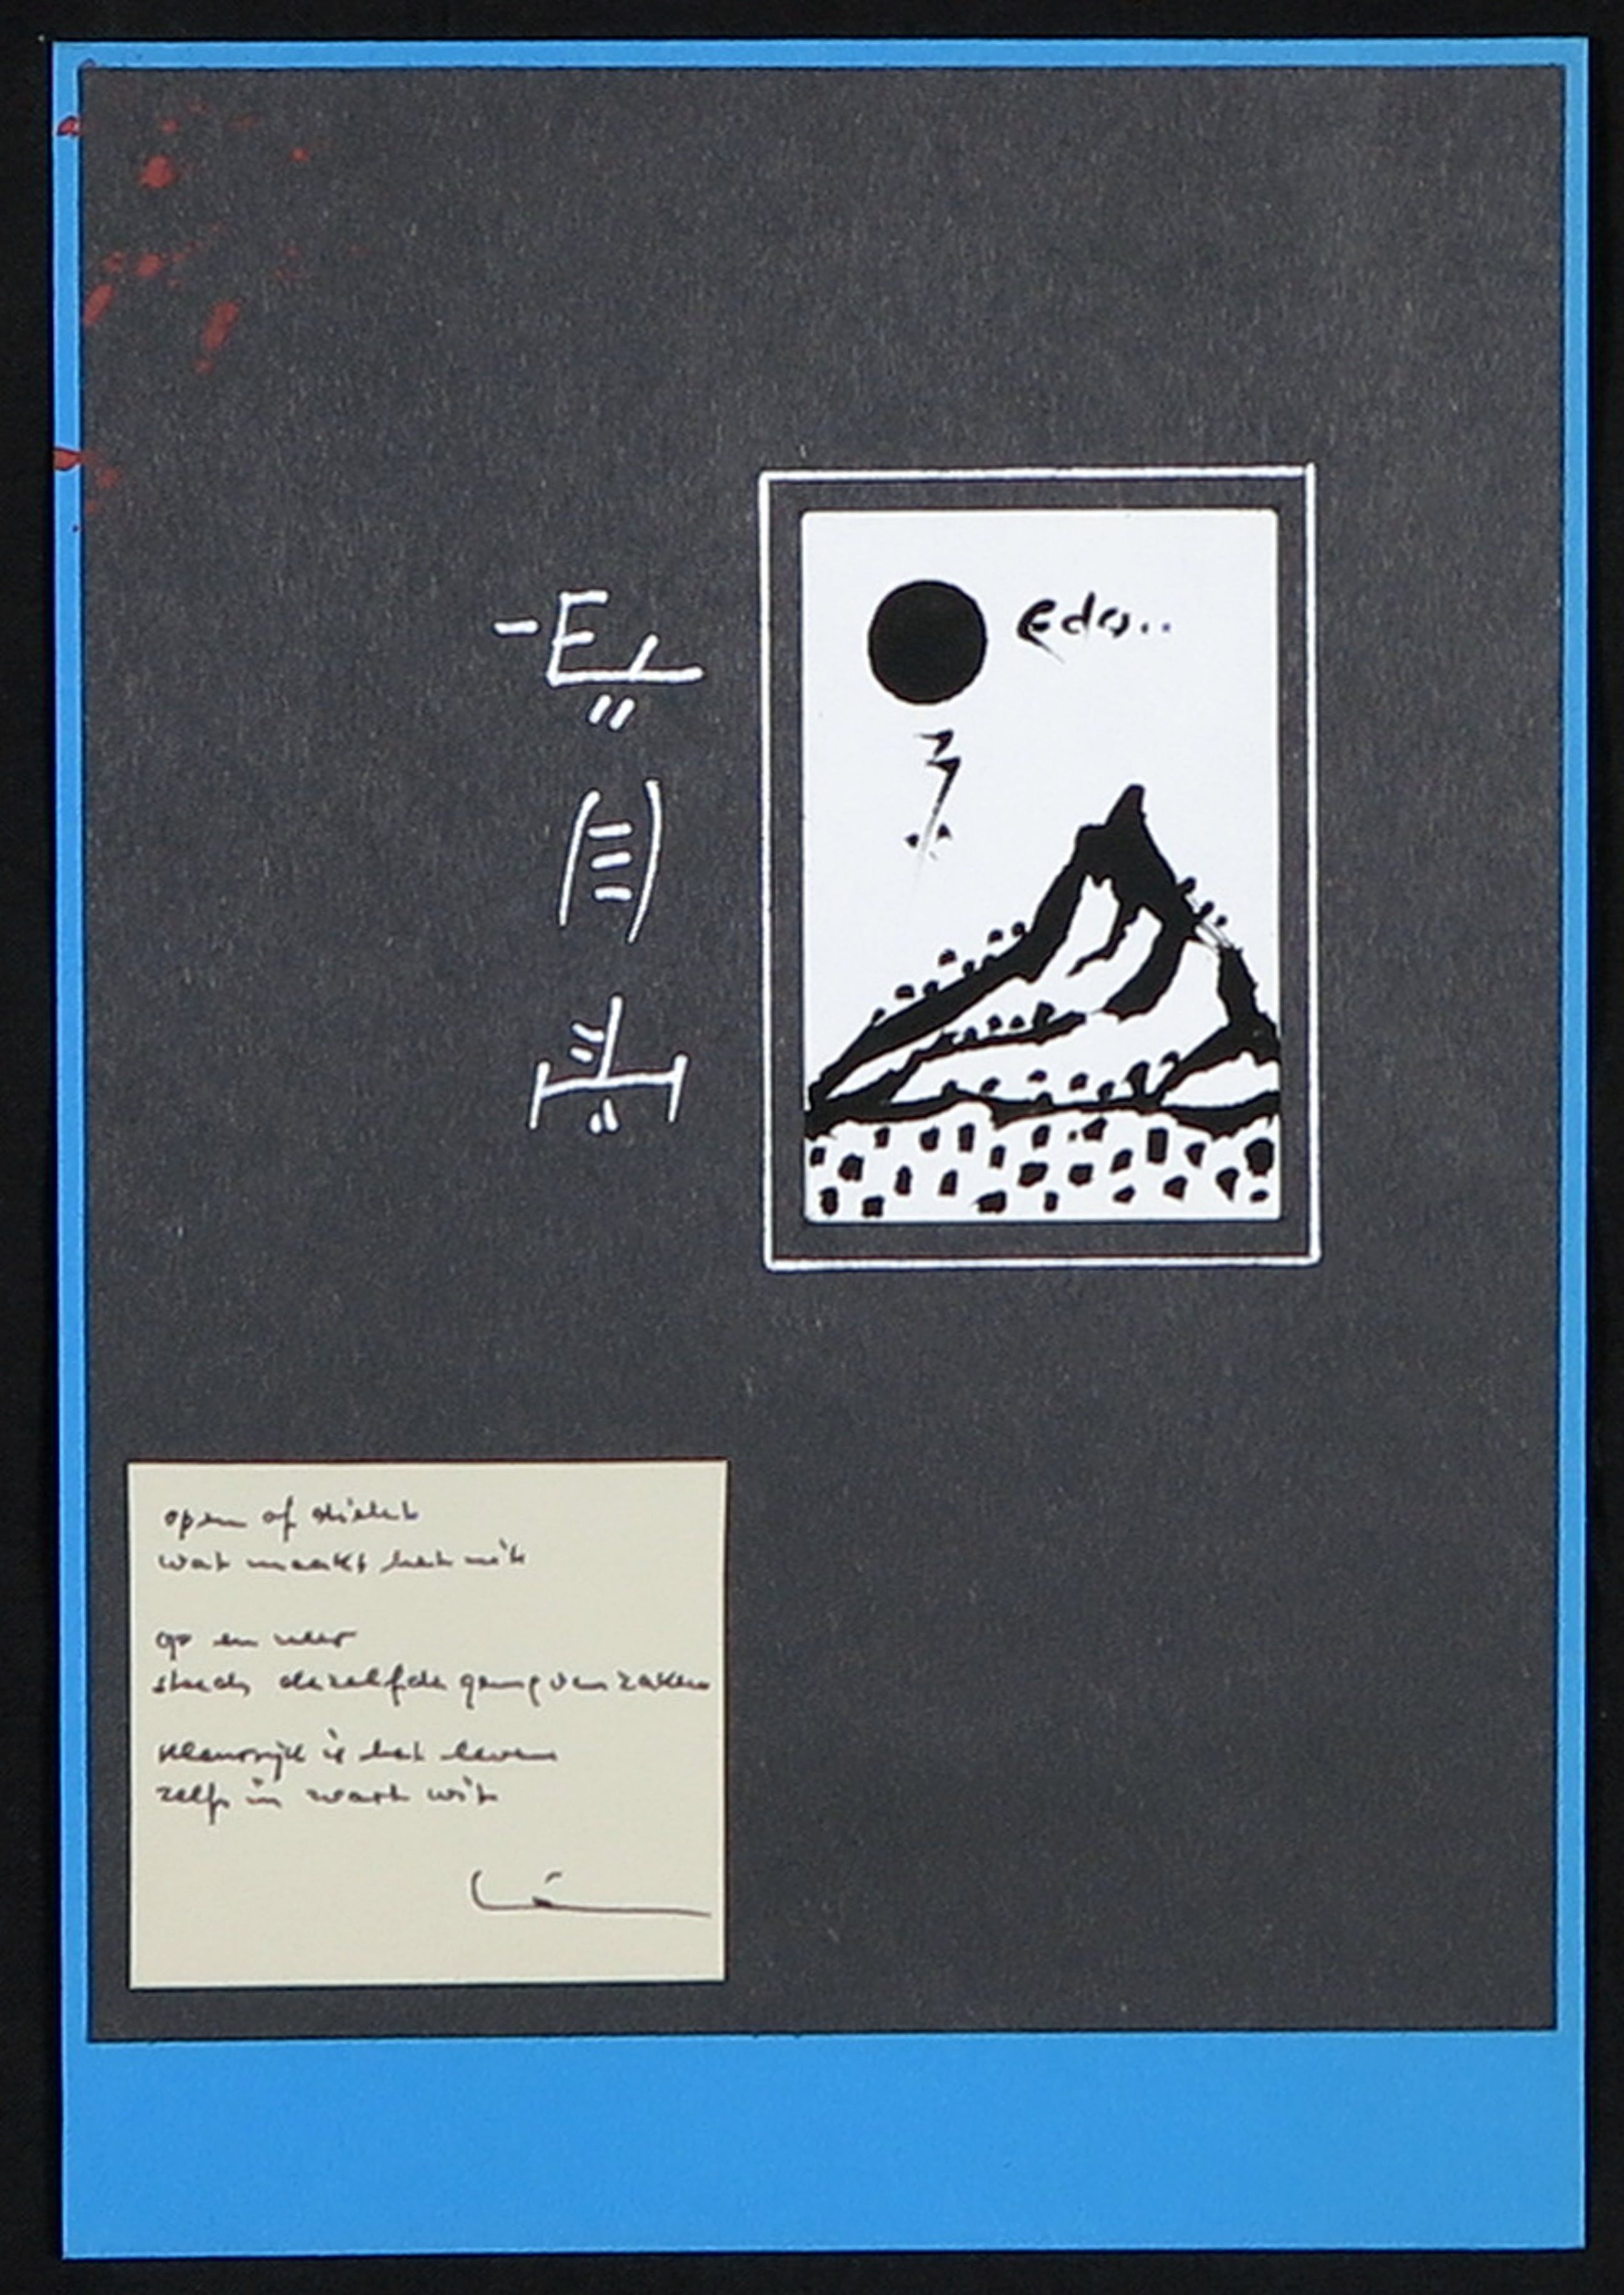 Edo..
open of dicht
wat maakt het uit
op en neer
steeds dezelfde gang van zaken
kleurrijk is het leven
zelfs in zwart wit